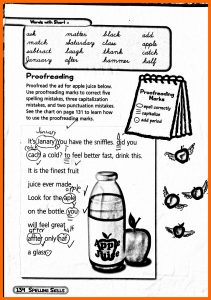 Words with Short a
ask matter black add
match Saturday class apple
subtract laugh thank catch
January after hammer half
Proofreading
Proofread the ad for apple juice below.
Use proofreading marks to correct five
spelling mistakes, three capitalization
mistakes, and two punctuation mistakes.
See the chart on page 131 to learn how
to use the proofreading marks.
Proofreading
Marks
spell correctly
capitalize
add period
January
It's january You have the sniffles. did you
catch
cach a cold? to feel better fast, drink this.
It is the finest fruit
juice ever made.
apple
Look for the aple
on the bottle. you
will feel great
after half
affter only haf
a glass
Apple
Juice
134 SPELLING SKILLS